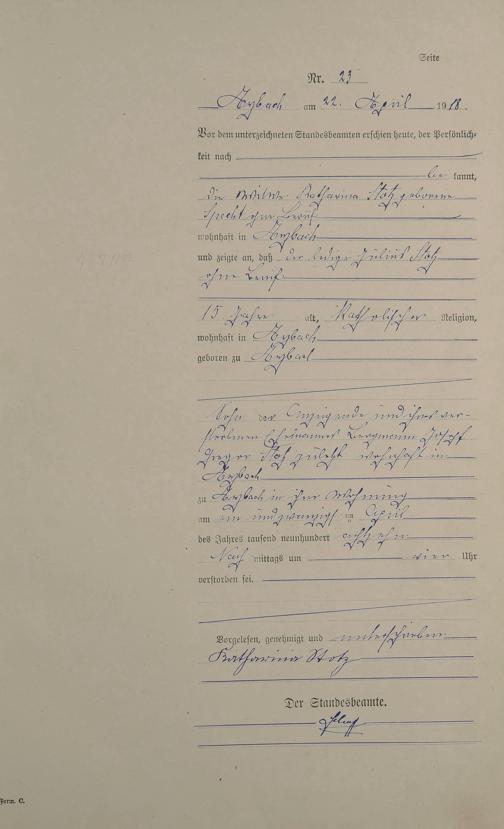 Seite
Nr. 23
Aybach am 22. April 1918.
Vor dem unterzeichneten Standesbeamten erschien heute, der Persönlich-
keit nach
be kannt,
die Witwe Katharina Stotz geborene
Specht ohne Beruf
wohnhaft in Aybach
und zeigte an, daß der ledige Julius Stotz
ohne Beruf
15 Jahre alt, Katholischer Religion,
wohnhaft in Aybach
geboren zu Aybach
Sohn der Anzeigende und ihres ver-
storbenen Ehemannes Bergmann Joseph
Stotz zuletzt wohnhaft in
Aybach
zu Aybach in ihrer Wohnung
am ein und zwanzigsten April
des Jahres tausend neunhundert achtzehn
Nach mittags um vier Uhr
verstorben sei.
Vorgelesen, genehmigt und unterschrieben
Katharina Stotz
Der Standesbeamte.
Form. C.